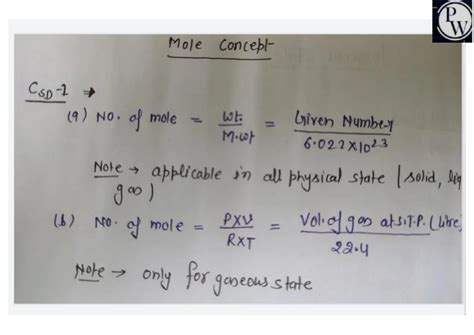 P
W
Mole Concept
CSD-1 →
(a) NO. of mole = Wt. / M.wt = Given Number / 6.022 X 10^23
Note → applicable in all physical state (solid, liq
gas)
(b) NO. of mole = PXV / RXT = Vol. of gas at S.T.P. (Litre) / 22.4
Note → only for gaseous state